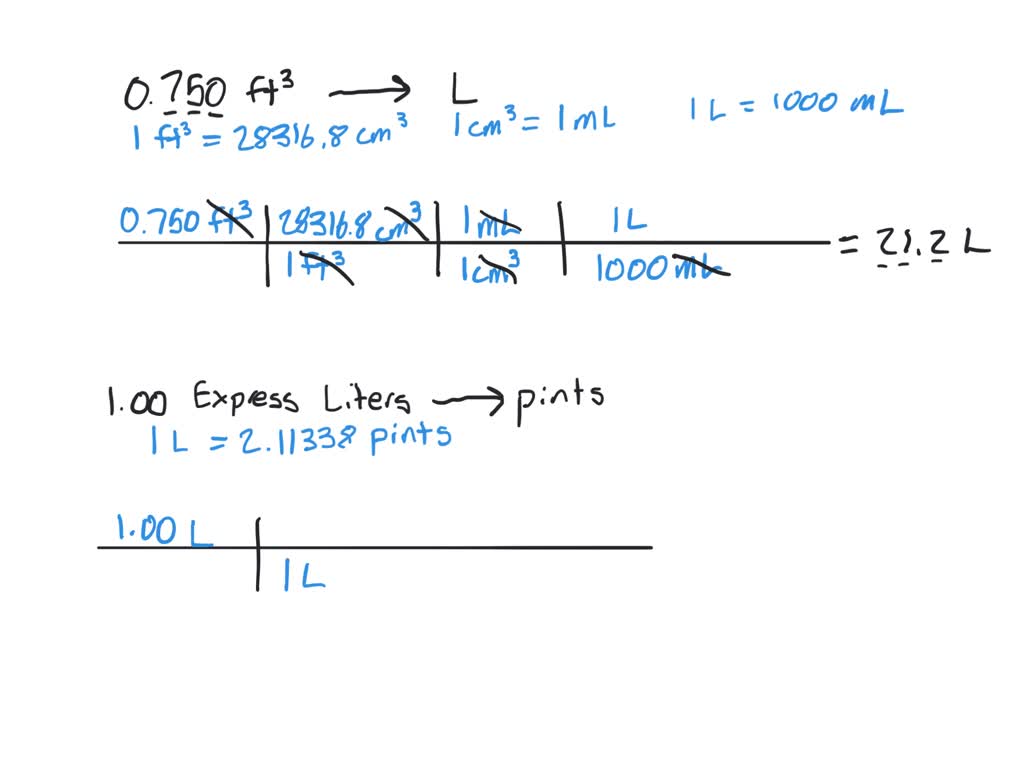 0.750 ft³ → L
1 ft³ = 28316.8 cm³ 1 cm³ = 1 mL 1 L = 1000 mL
0.750 ft³ | 28316.8 cm³ | 1 mL | 1 L
1 ft³ | 1 cm³ | 1000 mL = 21.2 L
1.00 Express Liters → pints
1 L = 2.11338 pints
1.00 L
1 L